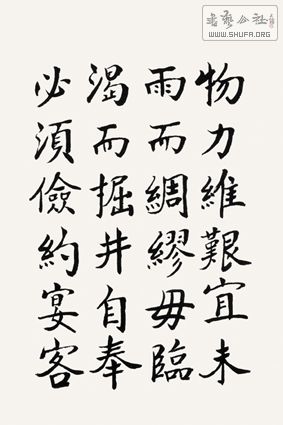 物力維艱宜未
雨而綢繆毋臨
渴而掘井自奉
必須儉約宴客
書藝公社
WWW.SHUFA.ORG